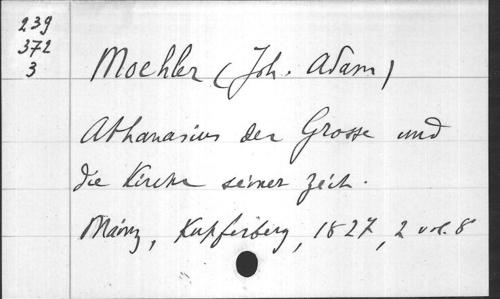 239
372
3
Moehler (Joh. Adam)
Athanasius der Grosse und
die Kirche seiner Zeit.
Mainz, Kupferberg, 1827, 2 vol. 8